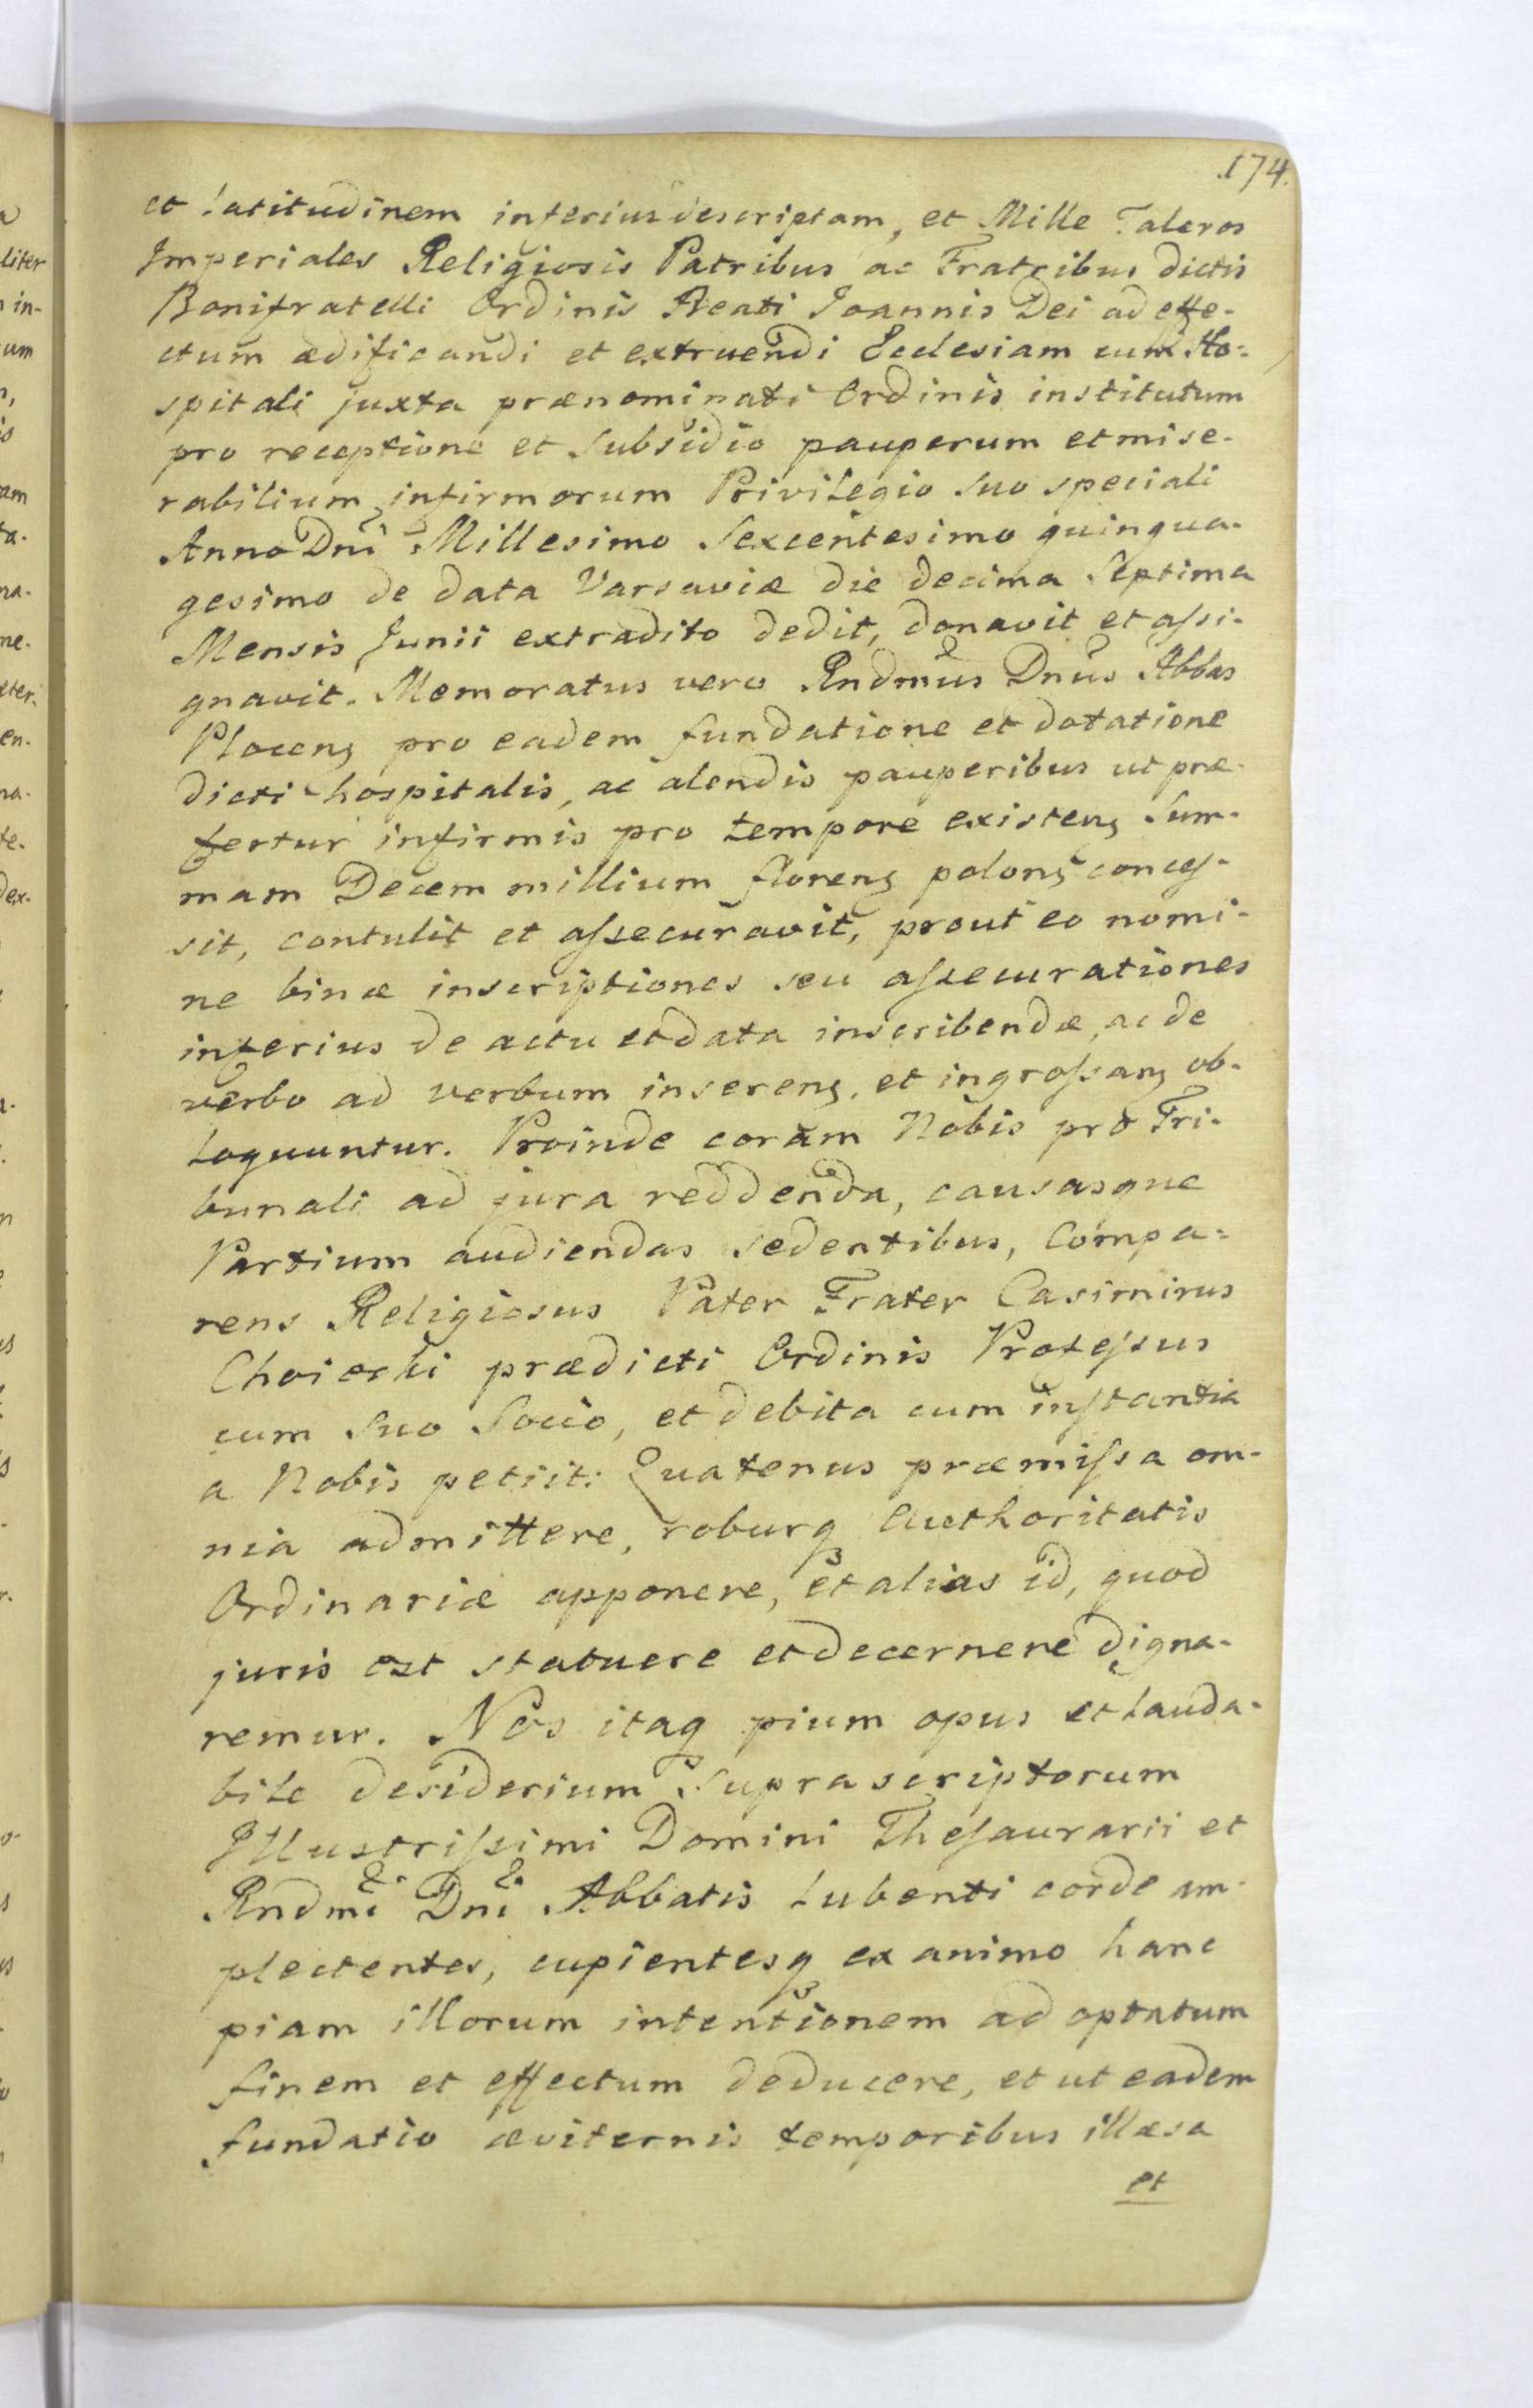 174.
et latitudinem inferius descriptam, et Mille Taleros
Imperiales Religiosis Patribus ac Fratribus dictis
Bonifratelli Ordinis Beati Joannis Dei ad effe-
ctum ædificandi et extruendi Ecclesiam cum Ho-
spitali juxta prænominati Ordinis institutum
pro receptione et subsidio pauperum et mise-
rabilium infirmorum Privilegio suo speciali
Anno Dni Millesimo Sexcentesimo quinqua-
gesimo de data Varsaviæ die decima Septima
Mensis Junii extradito dedit, donavit et assi-
gnavit. Memoratus vero Rndmus Dnus Abbas
Plocenʒ pro eadem fundatione et dotatione
dicti hospitalis, ac alendis pauperibus ut præ-
fertur infirmis pro tempore existenʒ Sum-
mam Decem millium florenʒ polonʒ conces-
sit, contulit et assecuravit, prout eo nomi-
ne binæ inscriptiones seu assecurationes
inferius de actu et data inscribendæ, ac de
verbo ad verbum inserenʒ, et ingrossanʒ ob-
loquuntur. Proinde coram Nobis pro Tri-
bunali ad jura reddenda, causasque
Partium audiendas sedentibus, Compa-
rens Religiosus Pater Frater Casimirus
Choiecki prædicti Ordinis Professus
cum suo Socio, et debita cum instantia
a Nobis petiit: Quatenus præmissa om-
nia admittere, roburqʒ Authoritatis
Ordinariæ apponere, et alias id, quod
juris est statuere et decernere digna-
remur. Nos itaqʒ pium opus et lauda-
bile desiderium suprascriptorum
Illustrissimi Domini Thesaurarii et
Rndmi Dni Abbatis lubenti corde am-
plectentes, cupientesqʒ ex animo hanc
piam illorum intentionem ad optatum
finem et effectum deducere, et ut eadem
fundatio æviternis temporibus illæsa
et